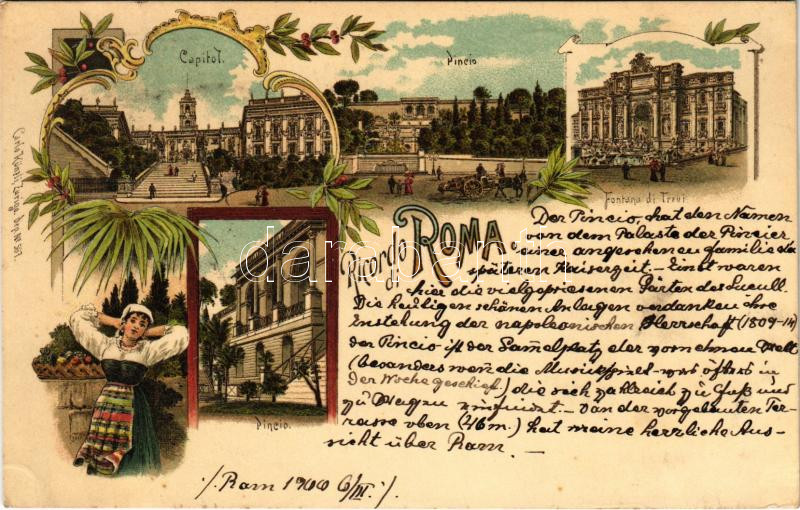 Capitol.
Pincio
Fontana di Trevi
Pincio.
Ricordo di ROMA
Der Pincio, hat den Namen
von dem Palaste der Pincier
einer angesehenen familie da
späteren Kaiserzeit. – Einst waren
hier die vielgepriesenen Gärten des Lucull.
Die heutigen schönen Anlagen verdanken ihre
Enstehung der napoleonischen Herrschaft (1809-14)
der Pincio ist der Sammelplatz der vornehmen Welt
(besonders wenn die Musik spielt was öfters in
der Woche geschieht.) die sich zahlreich zu Fuß und
zu Wagen einfindet. – Von der vorgebauten Ter-
rasse oben (46m.) hat man eine herrliche Aus-
sicht über Rom. –
./. Rom 1900 6/III. ./.
darabanth